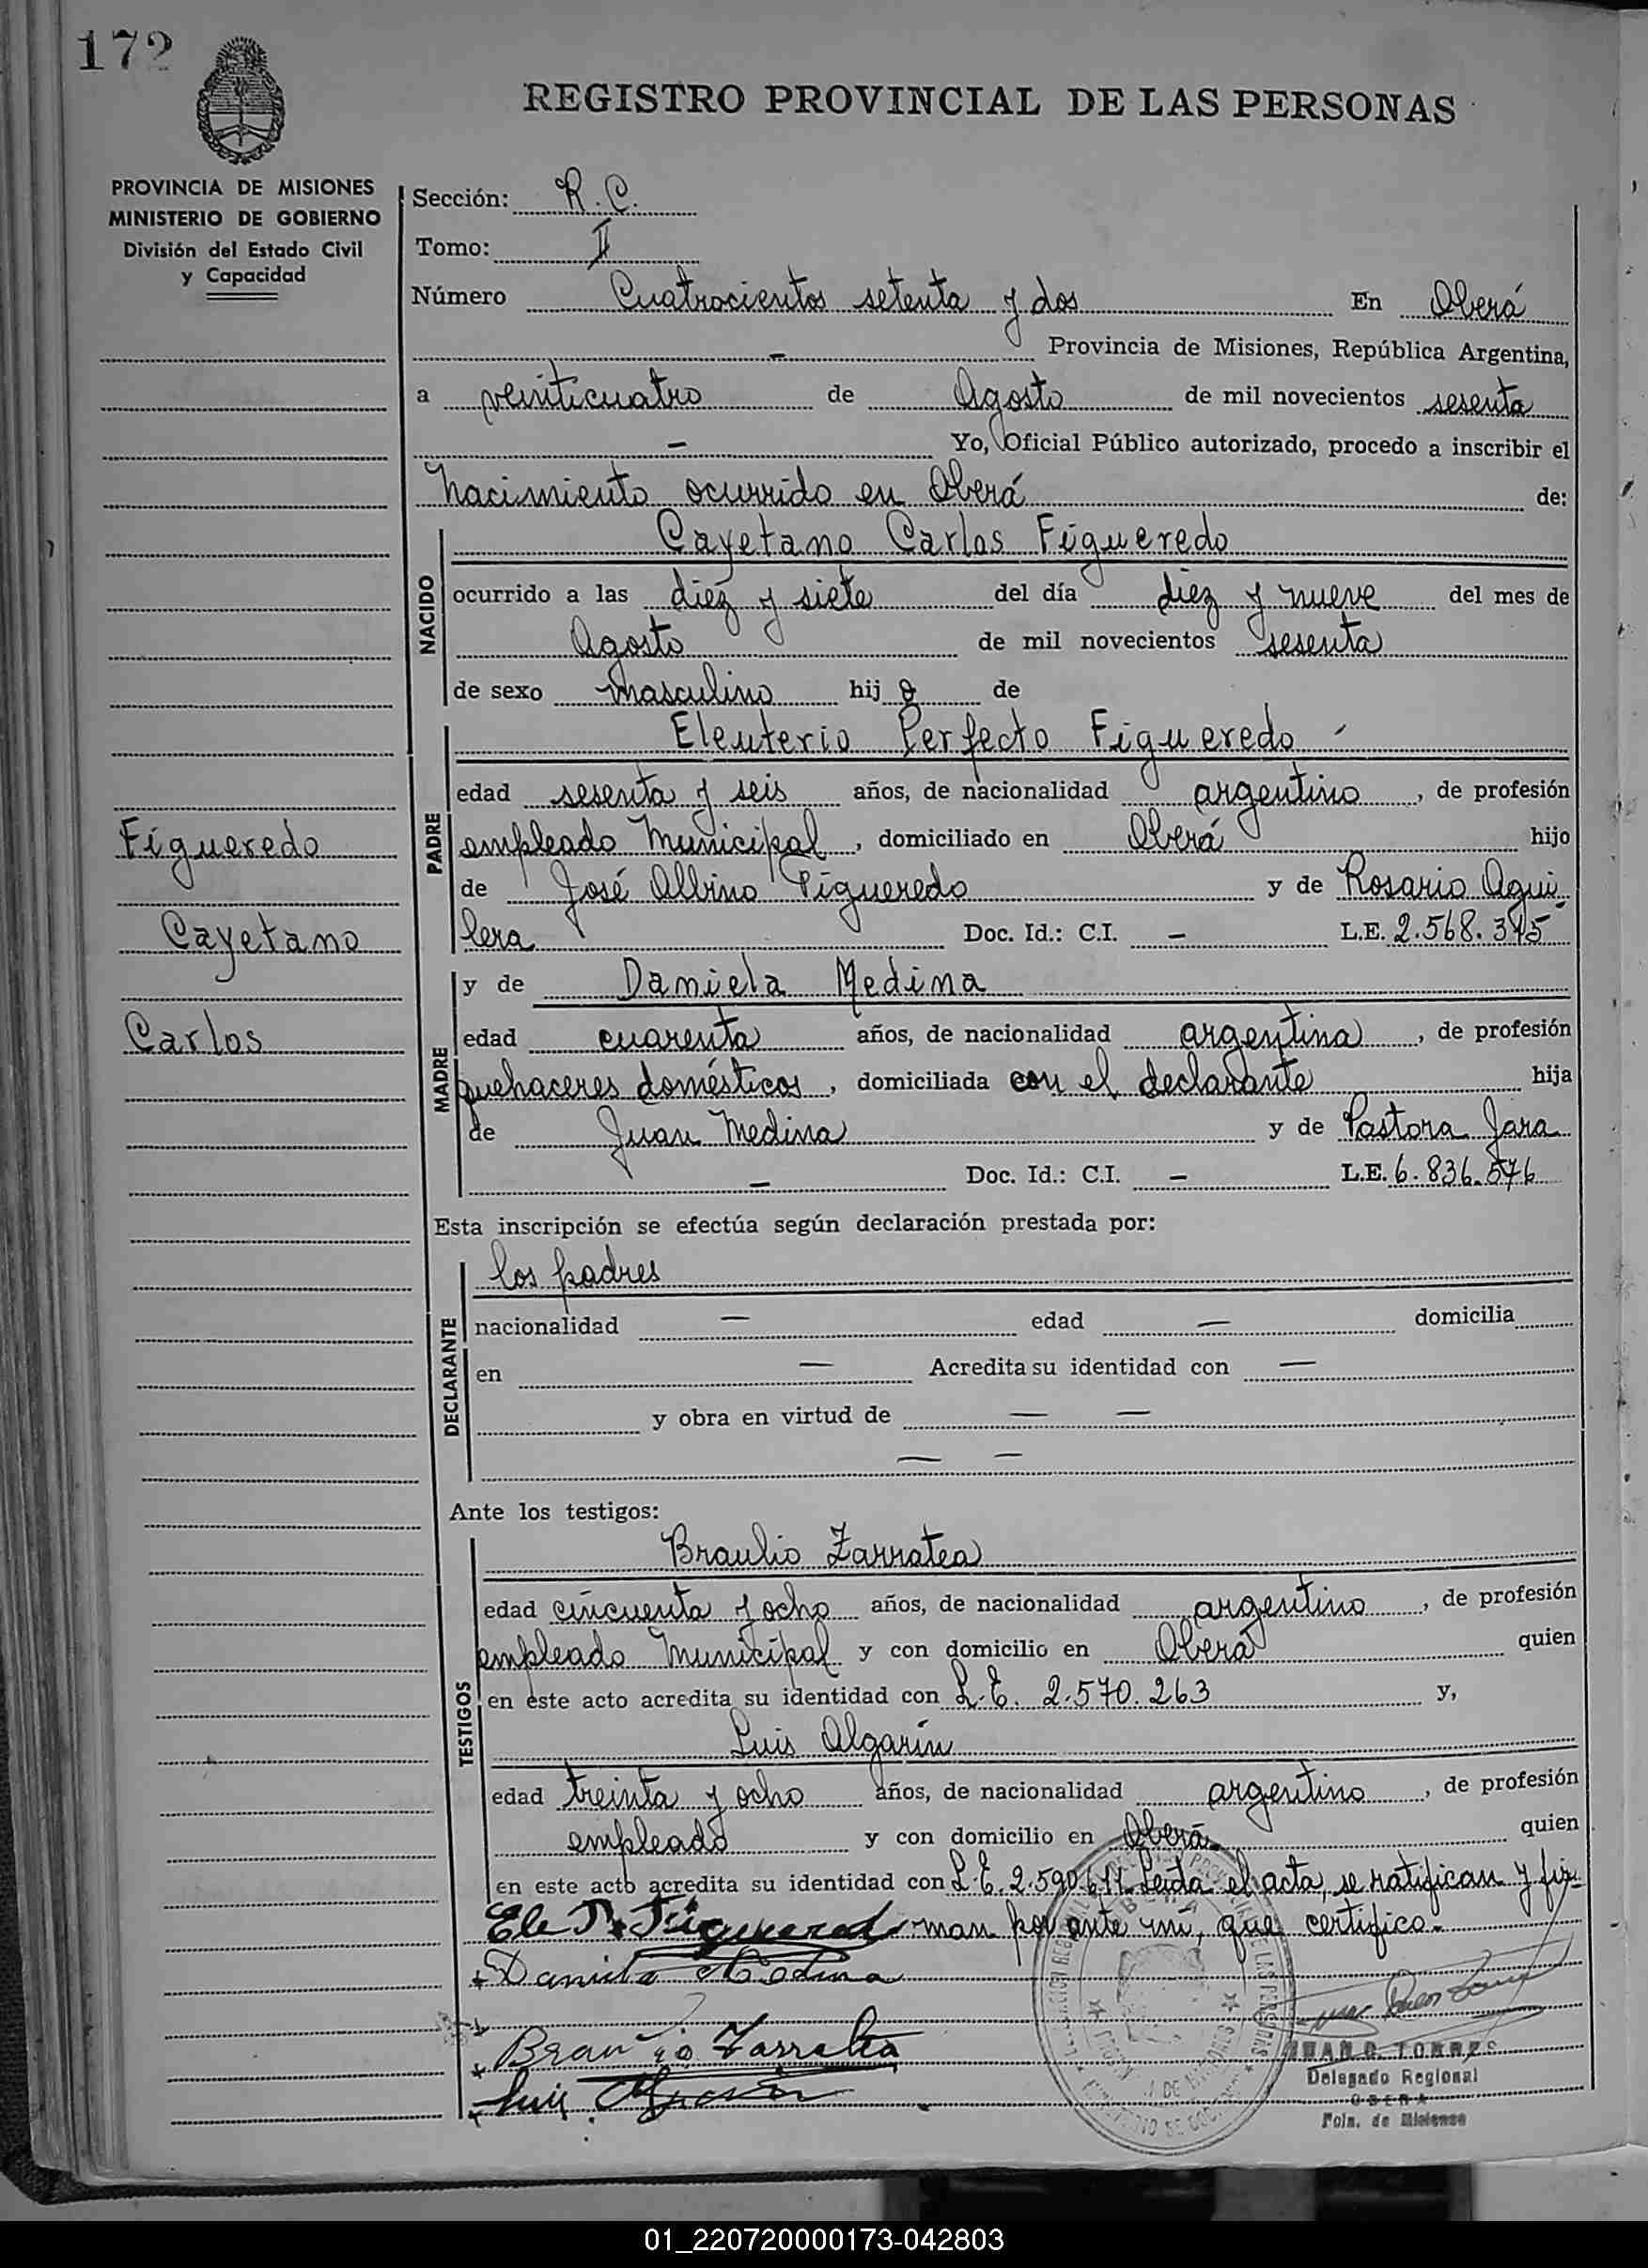 172
REGISTRO PROVINCIAL DE LAS PERSONAS
PROVINCIA DE MISIONES
MINISTERIO DE GOBIERNO
División del Estado Civil
y Capacidad
Sección: R. C.
Tomo: II
Número Cuatrocientos setenta y dos En Oberá
— Provincia de Misiones, República Argentina,
a veinticuatro de Agosto de mil novecientos sesenta
— Yo, Oficial Público autorizado, procedo a inscribir el
Nacimiento ocurrido en Oberá de:
NACIDO
Cayetano Carlos Figueredo
ocurrido a las diez y siete del día diez y nueve del mes de
Agosto de mil novecientos sesenta
de sexo masculino hijo de
PADRE
Eleuterio Perfecto Figueredo
edad sesenta y seis años, de nacionalidad argentino, de profesión
empleado Municipal, domiciliado en Oberá hijo
de José Albino Figueredo y de Rosario Agui-
lera Doc. Id.: C.I. — L.E. 2.568.345
Figueredo
Cayetano
Carlos
MADRE
y de Daniela Medina
edad cuarenta años, de nacionalidad argentina, de profesión
quehaceres domésticos, domiciliada con el declarante hija
de Juan Medina y de Pastora Jara
— Doc. Id.: C.I. — L.E. 6.836.576
Esta inscripción se efectúa según declaración prestada por:
DECLARANTE
los padres
nacionalidad — edad — domicilia
en — Acredita su identidad con —
y obra en virtud de — —
— —
Ante los testigos:
TESTIGOS
Braulio Zarratea
edad cincuenta y ocho años, de nacionalidad argentino, de profesión
empleado Municipal y con domicilio en Oberá quien
en este acto acredita su identidad con L.E. 2.570.263 y,
Luis Algarín
edad treinta y ocho años, de nacionalidad argentino, de profesión
empleado y con domicilio en Oberá quien
en este acto acredita su identidad con L.E. Leída el acta, se ratifican y fir-
Ele P. Figueredo man por ante mí, que certifico.
Daniela Medina
Braulio Zarratea
Luis Algarín
JUAN D. TORRES
Delegado Regional
OBERA
Pcia. de Misiones
01_220720000173-042803